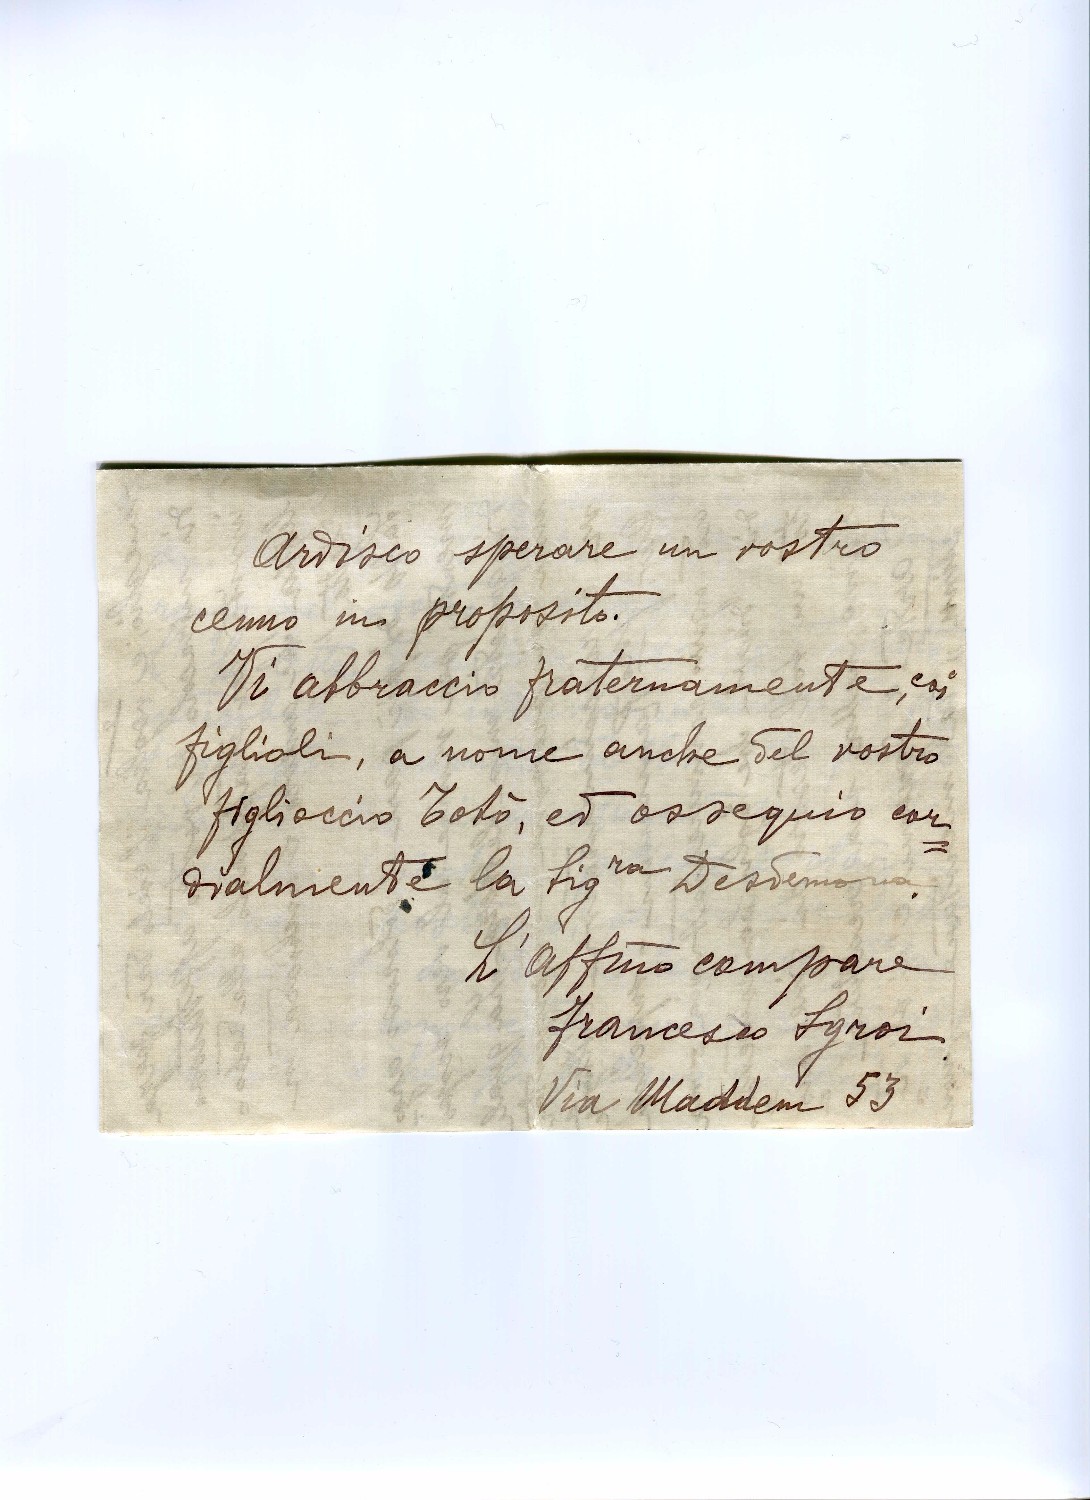 Ardisco sperare un vostro
cenno in proposito.
Vi abbraccio fraternamente, coi
figlioli, a nome anche del vostro
figlioccio Totò, ed ossequio cor=
dialmente la Sig.ra Desdemona.
L'affmo compare
Francesco Sgroi
Via Maddem 53